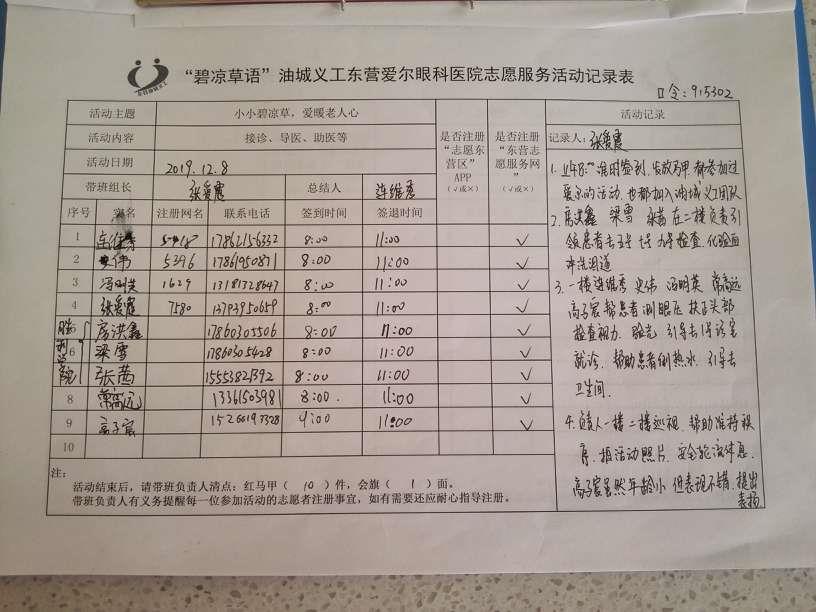 东营油城义工
“碧凉草语”油城义工东营爱尔眼科医院志愿服务活动记录表
口令:915302
活动主题 小小碧凉草,爱暖老人心
活动内容 接诊、导医、助医等
活动日期 2019.12.8
带班组长 张爱霞 总结人 连维秀
是否注册“志愿东营区”APP(√或×)
是否注册“东营志愿服务网”(√或×)
序号 实名 注册网名 联系电话 签到时间 签退时间
1 连维秀 17862156332 8:00 11:00 √
2 史伟 5396 17861950871 8:00 11:00 √
3 冯明英 1629 13181328647 8:00 11:00 √
4 张爱霞 7580 13793950659 8:00 11:00 √
胜利学院
5 房洪鑫 17860305506 8:00 11:00 √
6 梁雪 17860305428 8:00 11:00 √
7 张茜 15553821392 8:00 11:00 √
8 常高远 13361503981 8:00. 11:00 √
9 高子宸 9:00 11:00 √
10
活动记录
记录人:张爱霞
1. 上午8:00准时签到 发放马甲 都参加过
爱尔的活动 也都加入油城义工团队
2. 房洪鑫 梁雪 张茜在二楼负责引
领患者去 检查 化验
冲洗泪道
3. 一楼连维秀 史伟 冯明英 常高远
高子宸帮患者测眼压 扶正头部
检查视力 验光 引导去1号诊室
就诊 帮助患者倒热水 引导去
卫生间.
4. 负责人一楼二楼巡视 帮助维持秩
序 拍活动照片
高子宸虽然年龄小 但表现不错 提出
表扬
注:
活动结束后,请带班负责人清点:红马甲(10)件,会旗(1)面。
带班负责人有义务提醒每一位参加活动的志愿者注册事宜,如有需要还应耐心指导注册。